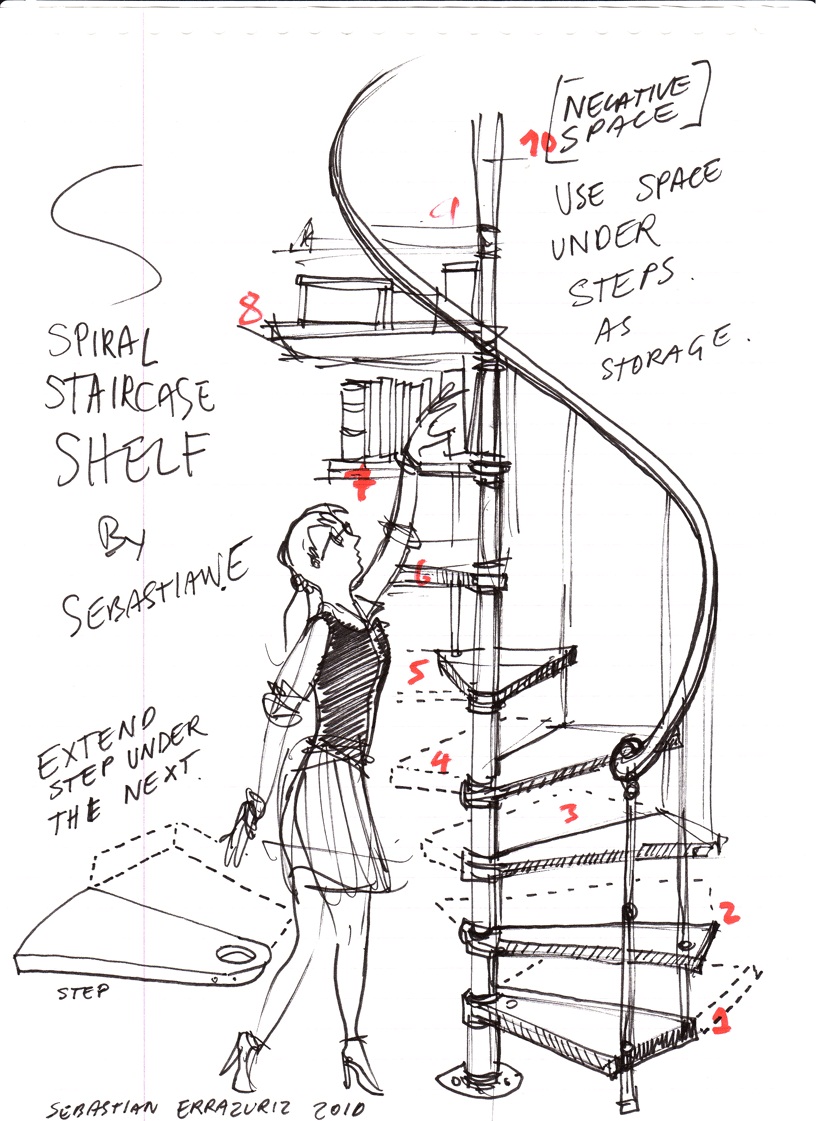 [NEGATIVE
SPACE]
USE SPACE
UNDER
STEPS.
AS
STORAGE.
SPIRAL
STAIRCASE
SHELF
By
SEBASTIAN.E
EXTEND
STEP UNDER
THE NEXT.
STEP
10
9
8
7
6
5
4
3
2
1
SEBASTIAN ERRAZURIZ 2010